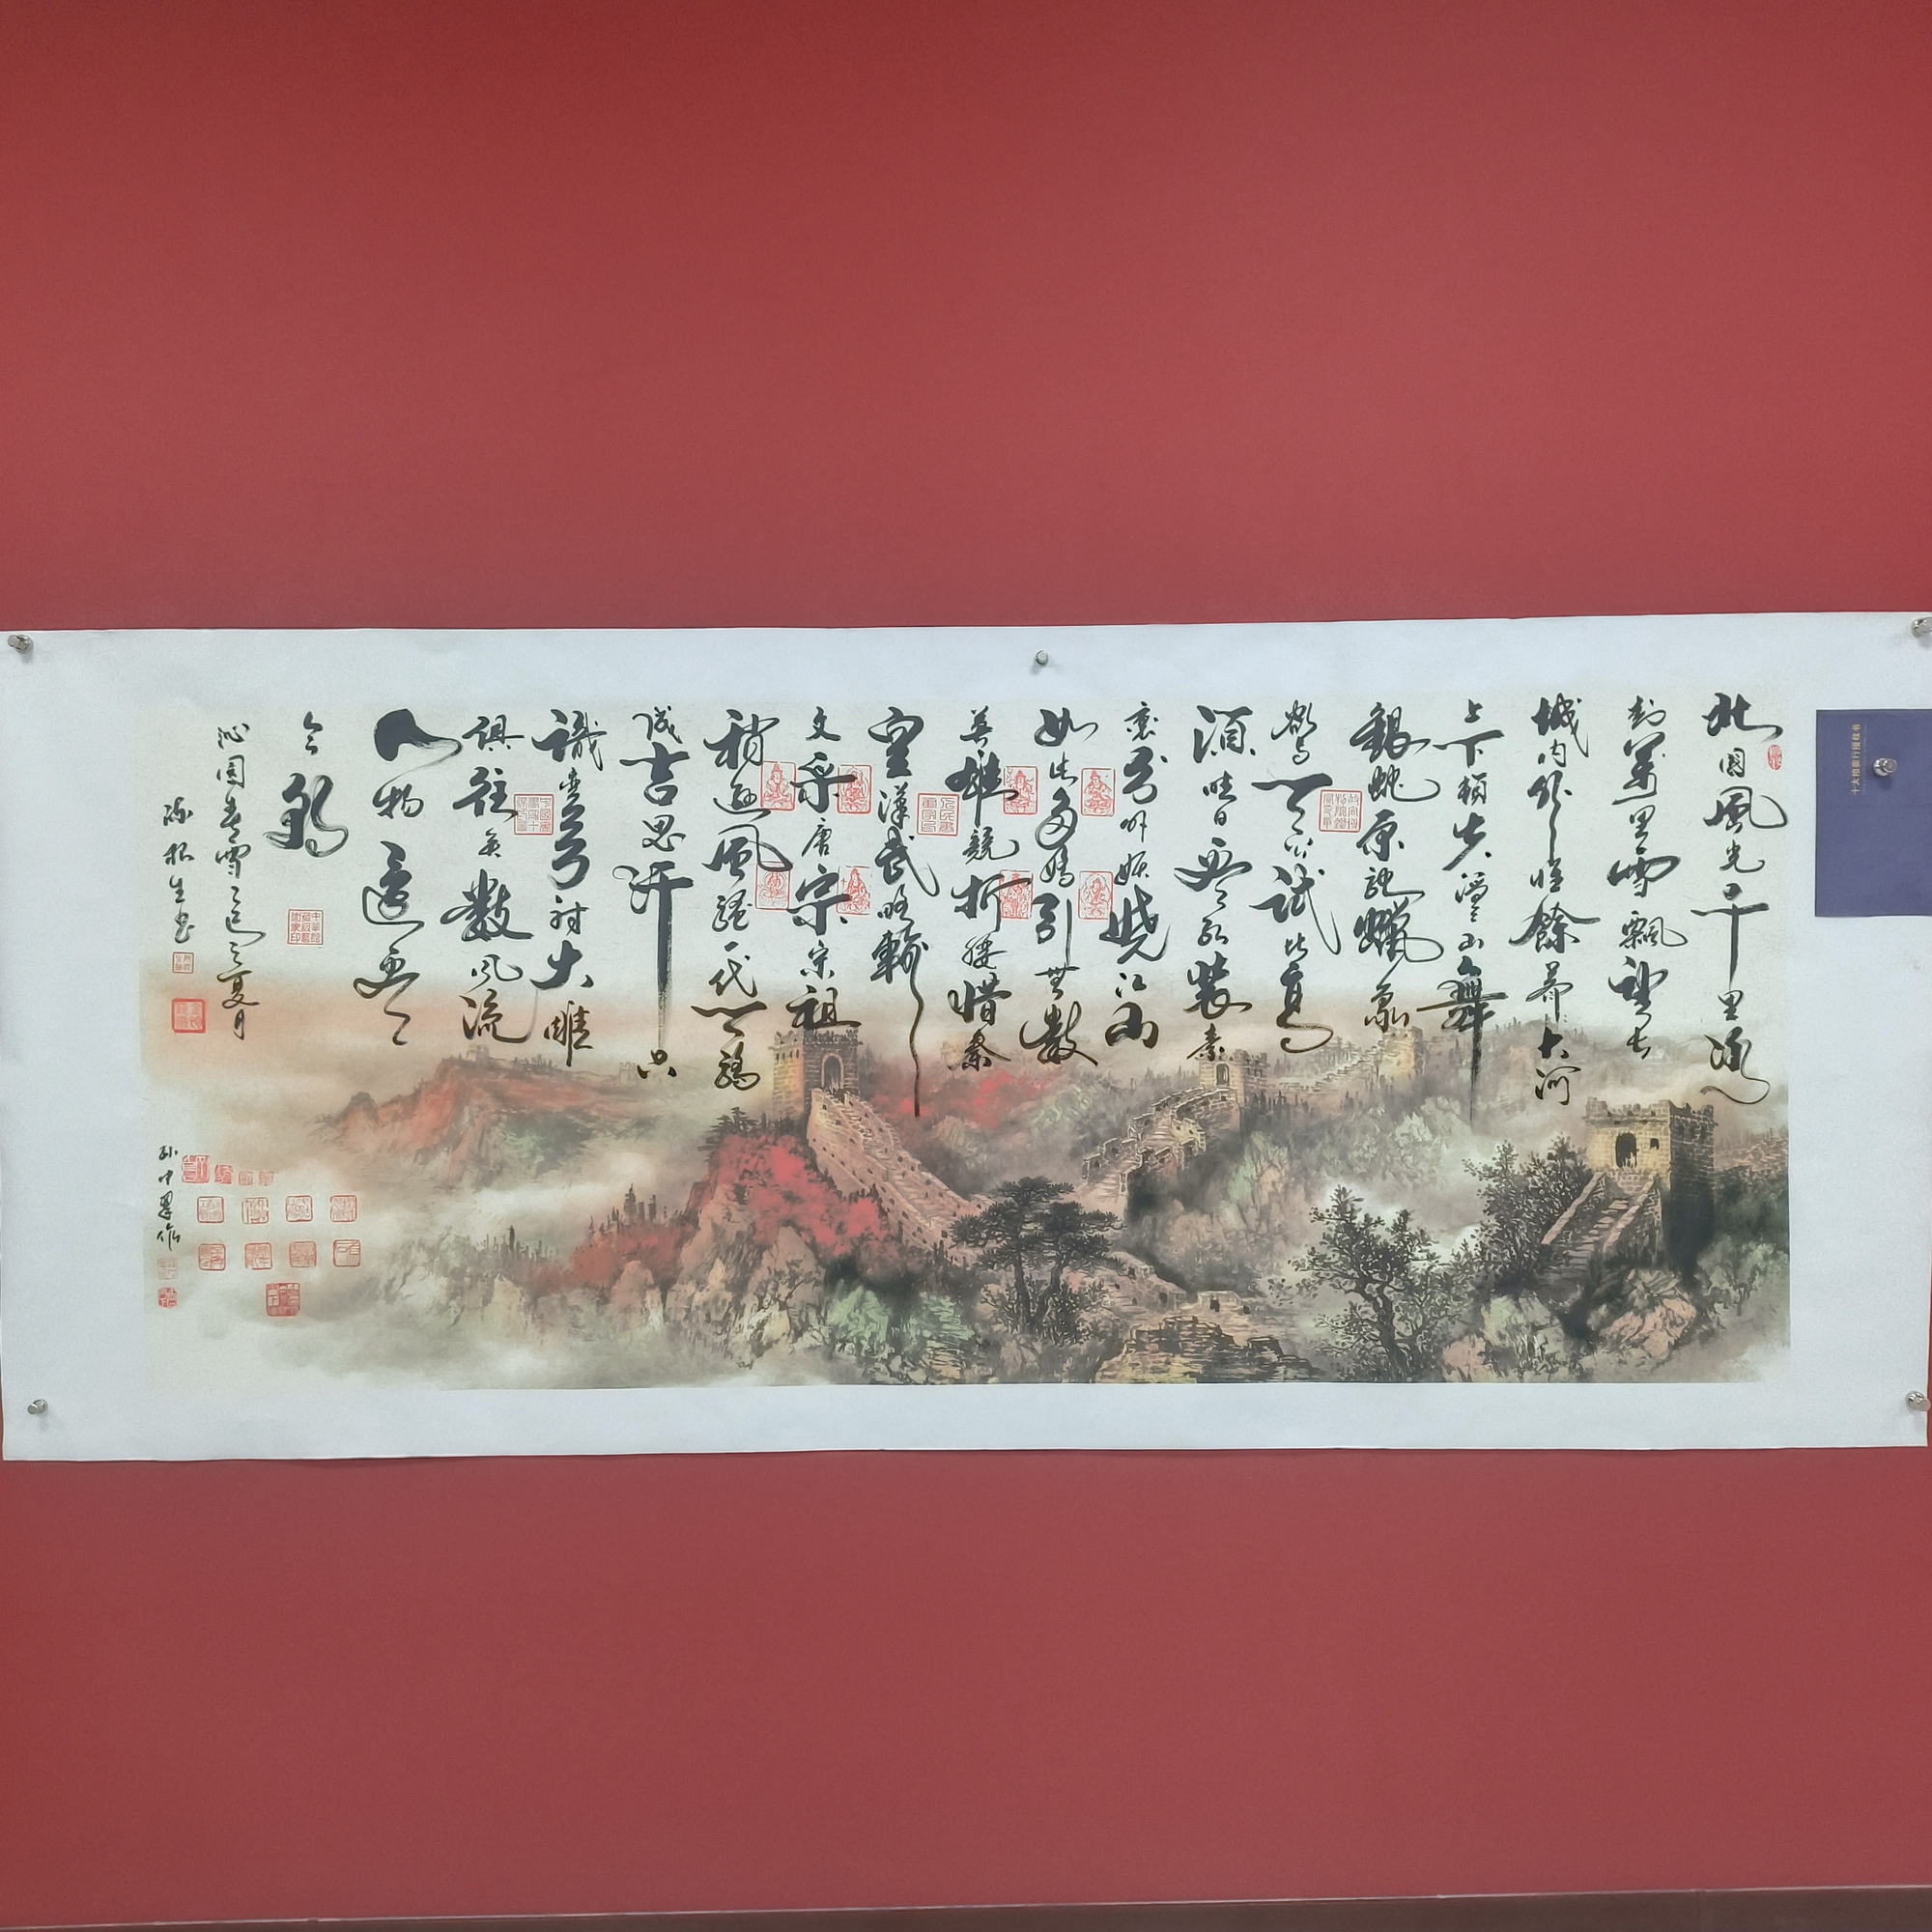 北国風光千里冰
封萬里雪飄望长
城内外惟餘莽莽大河
上下頓失滔滔山舞
銀蛇原馳蠟象
欲与天公試比高
須晴日看红裝素
裹分外妖嬈江山
如此多嬌引無數
英雄競折腰惜秦
皇漢武略輸
文采唐宗宋祖
稍遜風騷一代天驕
成吉思汗只
識彎弓射大雕
俱往矣數風流
人物還看
今朝
沁園春雪乙巳之夏月
生书
孙中
十大拍卖行授权书